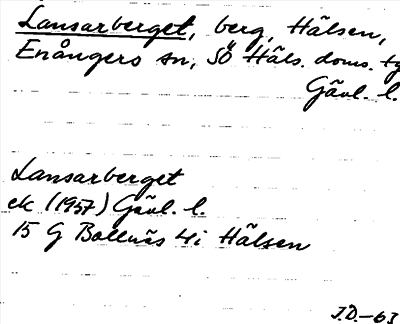 Lansarberget, berg, Hälsen,
Enångers sn, SÖ Häls. doms. tg
Gävl. l.
Lansarberget
ek (1957) Gävl. l.
15 G Bollnäs 4i Hälsen
J.D.-63